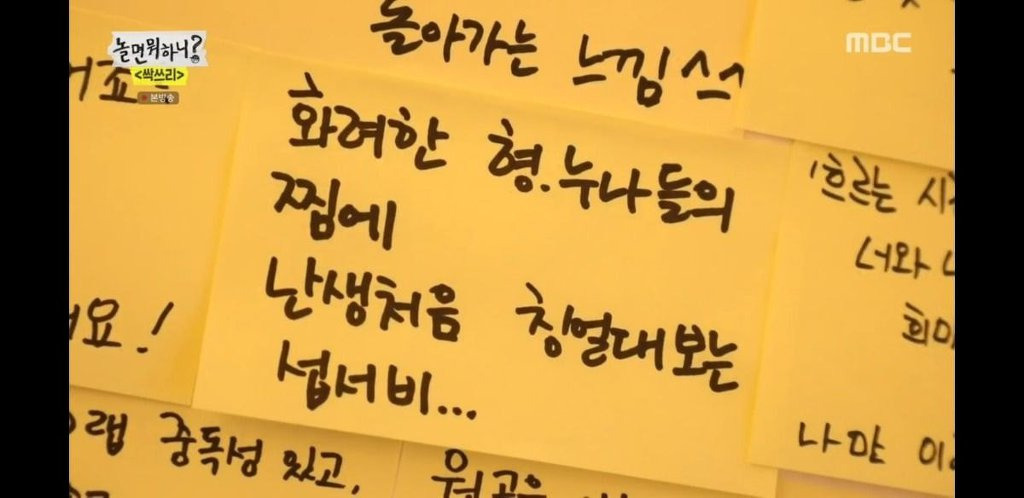 놀면뭐하니?
<싹쓰리>
본방송
MBC
돌아가는 느낌
화려한 형.누나들의
찜에
난생처음 칭얼대보는
섭서비...
'흐르는
너와
요!
랩 중독성 있고,
나만